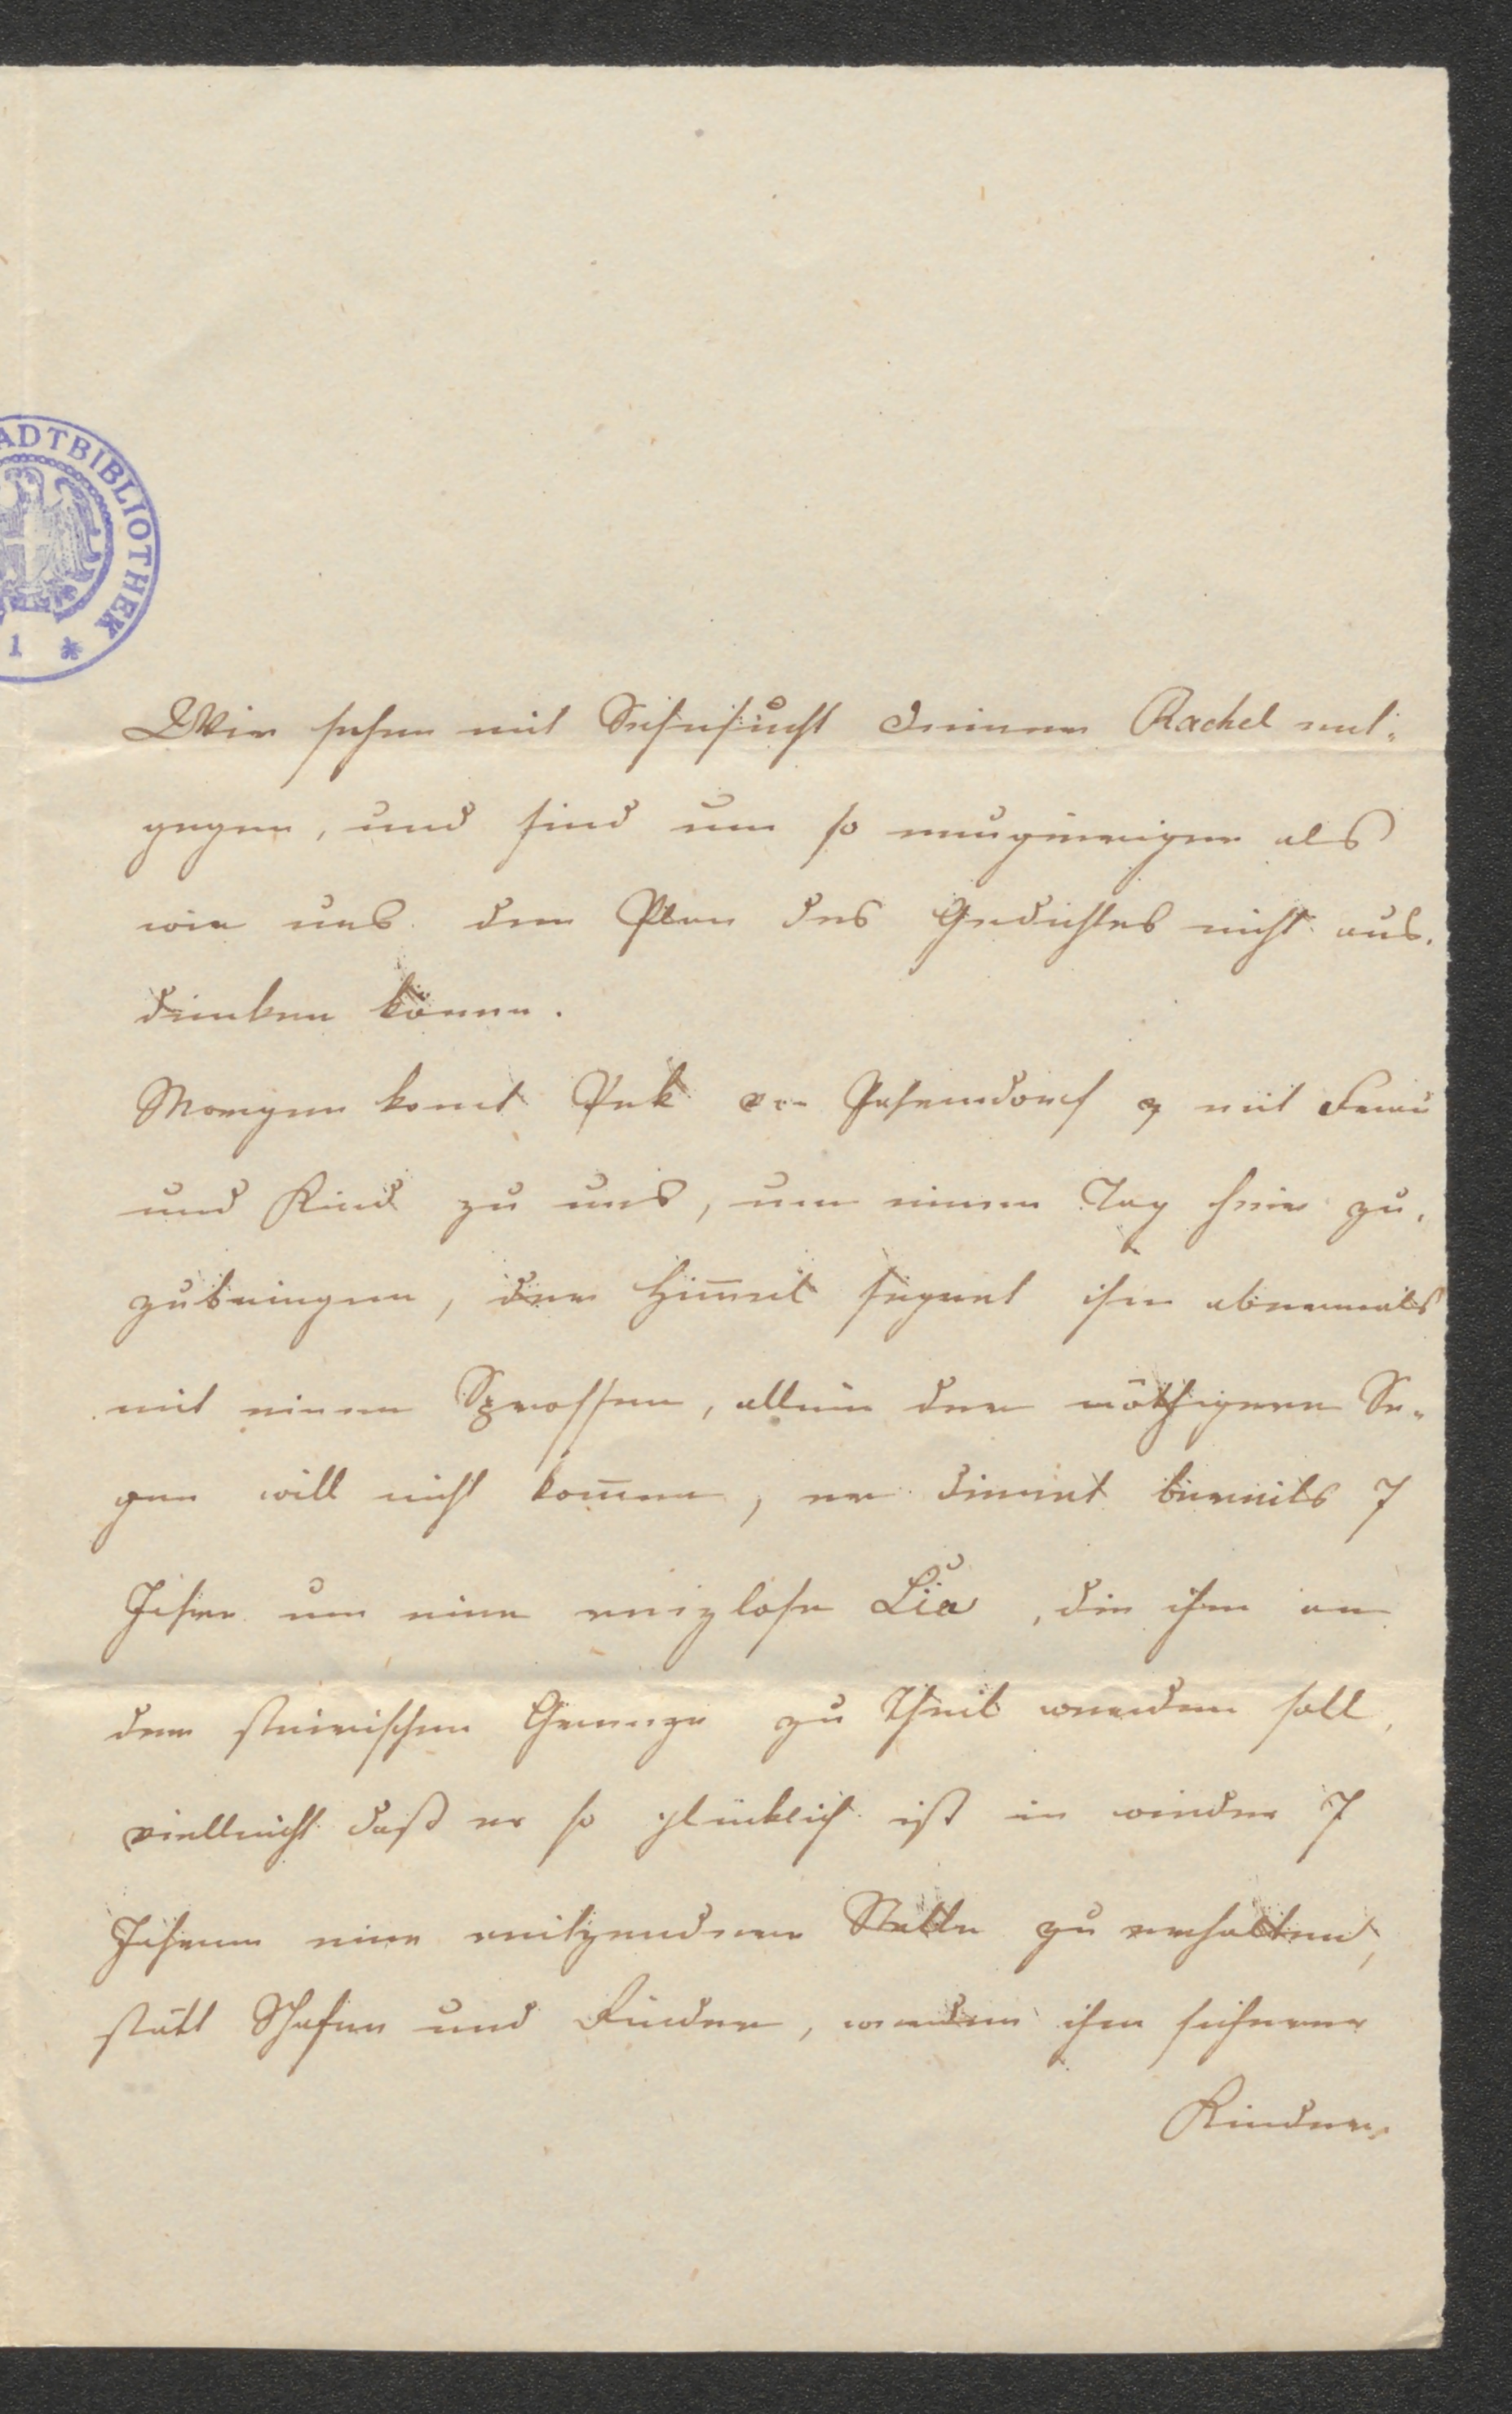 ADTBIBLIOTHEK
1 *
Wir sehen mit Sehnsucht Deiner Rachel ent-
gegen, und sind um so neugieriger als
wir uns den Plan des Gedichtes nicht aus-
denken könen.
Morgen komt Pek mit Frau
und Kind zu uns, um einen Tag hier zu-
zubringen, der Him̅el segnet ihn abermals
mit einem Sprossen, allein der nöthigere Se-
gen will nicht kom̅en, er dienet bereits 7
Jahre um eine reizlose Lia, die ihm an
der steirischen Grenze zu Theil werden soll,
vielleicht daß er so glücklich ist in wieder 7
Jahren eine reitzendere Stelle zu erhalten,
statt Schafen und Rinder, werden ihm sicherer
Kinder